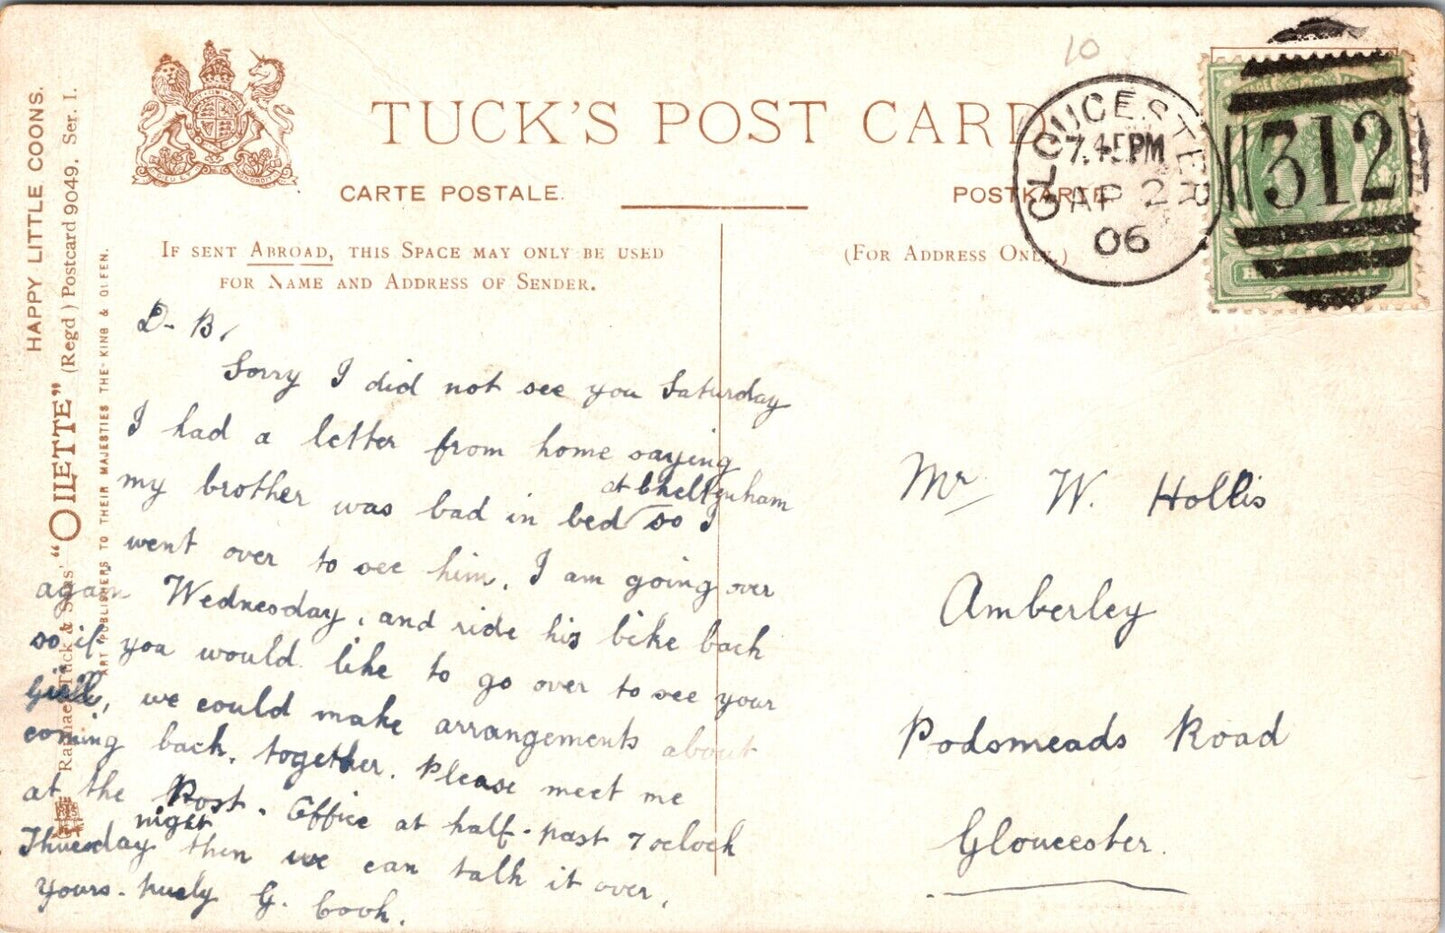 TUCK'S POST CARD
CARTE POSTALE.
POSTKARTE
IF SENT ABROAD, THIS SPACE MAY ONLY BE USED
FOR NAME AND ADDRESS OF SENDER.
(FOR ADDRESS ONLY.)
10
GLOUCESTER
7.45PM
AP 2
06
312
HAPPY LITTLE COONS.
Raphael Tuck & Sons' "OILETTE" (Regd) Postcard 9049. Ser. I.
ART PUBLISHERS TO THEIR MAJESTIES THE KING & QUEEN.
D- B,
Sorry I did not see you Saturday
I had a letter from home saying
my brother was bad in bed at Cheltenham so I
went over to see him. I am going over
again Wednesday, and ride his bike back
so if you would like to go over to see your
Girl, we could make arrangements about
coming back, together. Please meet me
at the Post-Office at half-past 7 oclock
night then we can talk it over,
yours truely G. Cook.
Mr W. Hollis
Amberley
Podsmeads Road
Gloucester.